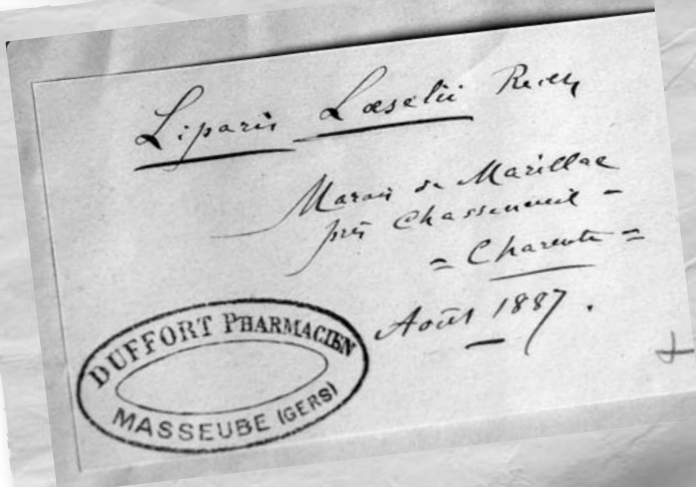 Liparis Loeselii Rich
Marais de Marillac
près Chasseneuil -
= Charente =
Août 1887.
DUFFORT PHARMACIEN
MASSEUBE (GERS)